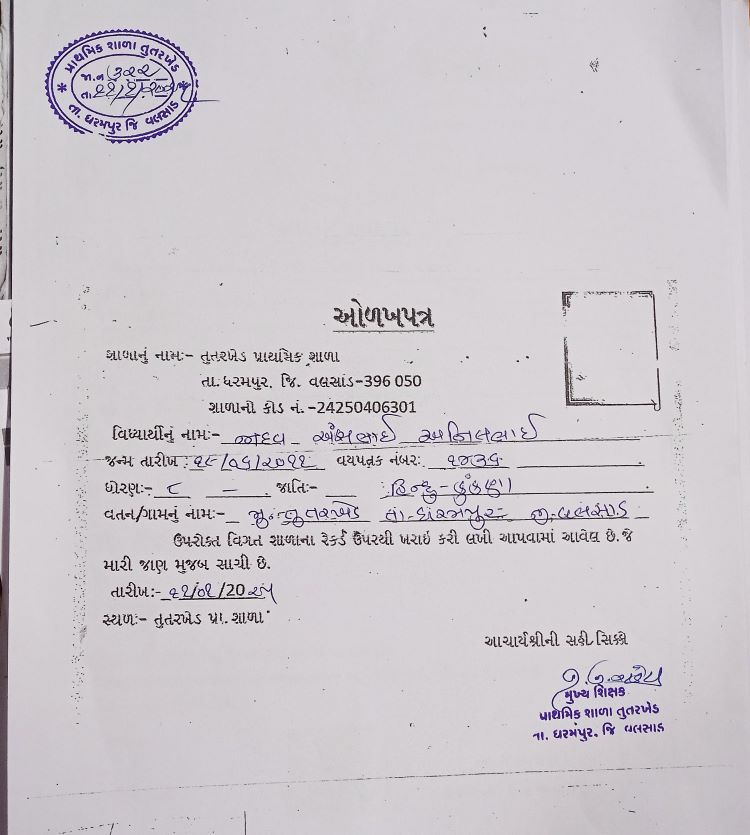 પ્રાથમિક શાળા તુતરખેડ
જા.ન ૩૨૨
તા.
તા. ધરમપુર જિ વલસાડ
ઓળખપત્ર
શાળાનું નામઃ- તુતરખેડ પ્રાથમિક શાળા
તા. ધરમપુર. જિ. વલસાંડ-396 050
શાળાનો કોડ નં. -24250406301
વિધ્યાર્થીનું નામઃ- જાદવ અનિલભાઈ
જન્મ તારીખ : ૧૯/૦૬/૨૦૧૧ વયપત્રક નંબરઃ ૧૪૩૬
ધોરણઃ- ૮ - જાતિઃ- હિન્દુ-કુંકણા
વતન/ગામનું નામઃ- મુ-તુતરખેડ તા-ધરમપુર જી-વલસાડ
ઉપરોક્ત વિગત શાળાના રેકર્ડ ઉપરથી ખરાઇ કરી લખી આપવામાં આવેલ છે.જે
મારી જાણ મુજબ સાચી છે.
તારીખઃ- ૨૨/૦૧/20૨૫
સ્થળઃ- તુતરખેડ પ્રા. શાળા
આચાર્યશ્રીની સહી સિક્કો
મુખ્ય શિક્ષક
પ્રાથમિક શાળા તુતરખેડ
તા. ધરમપુર. જિ વલસાડ